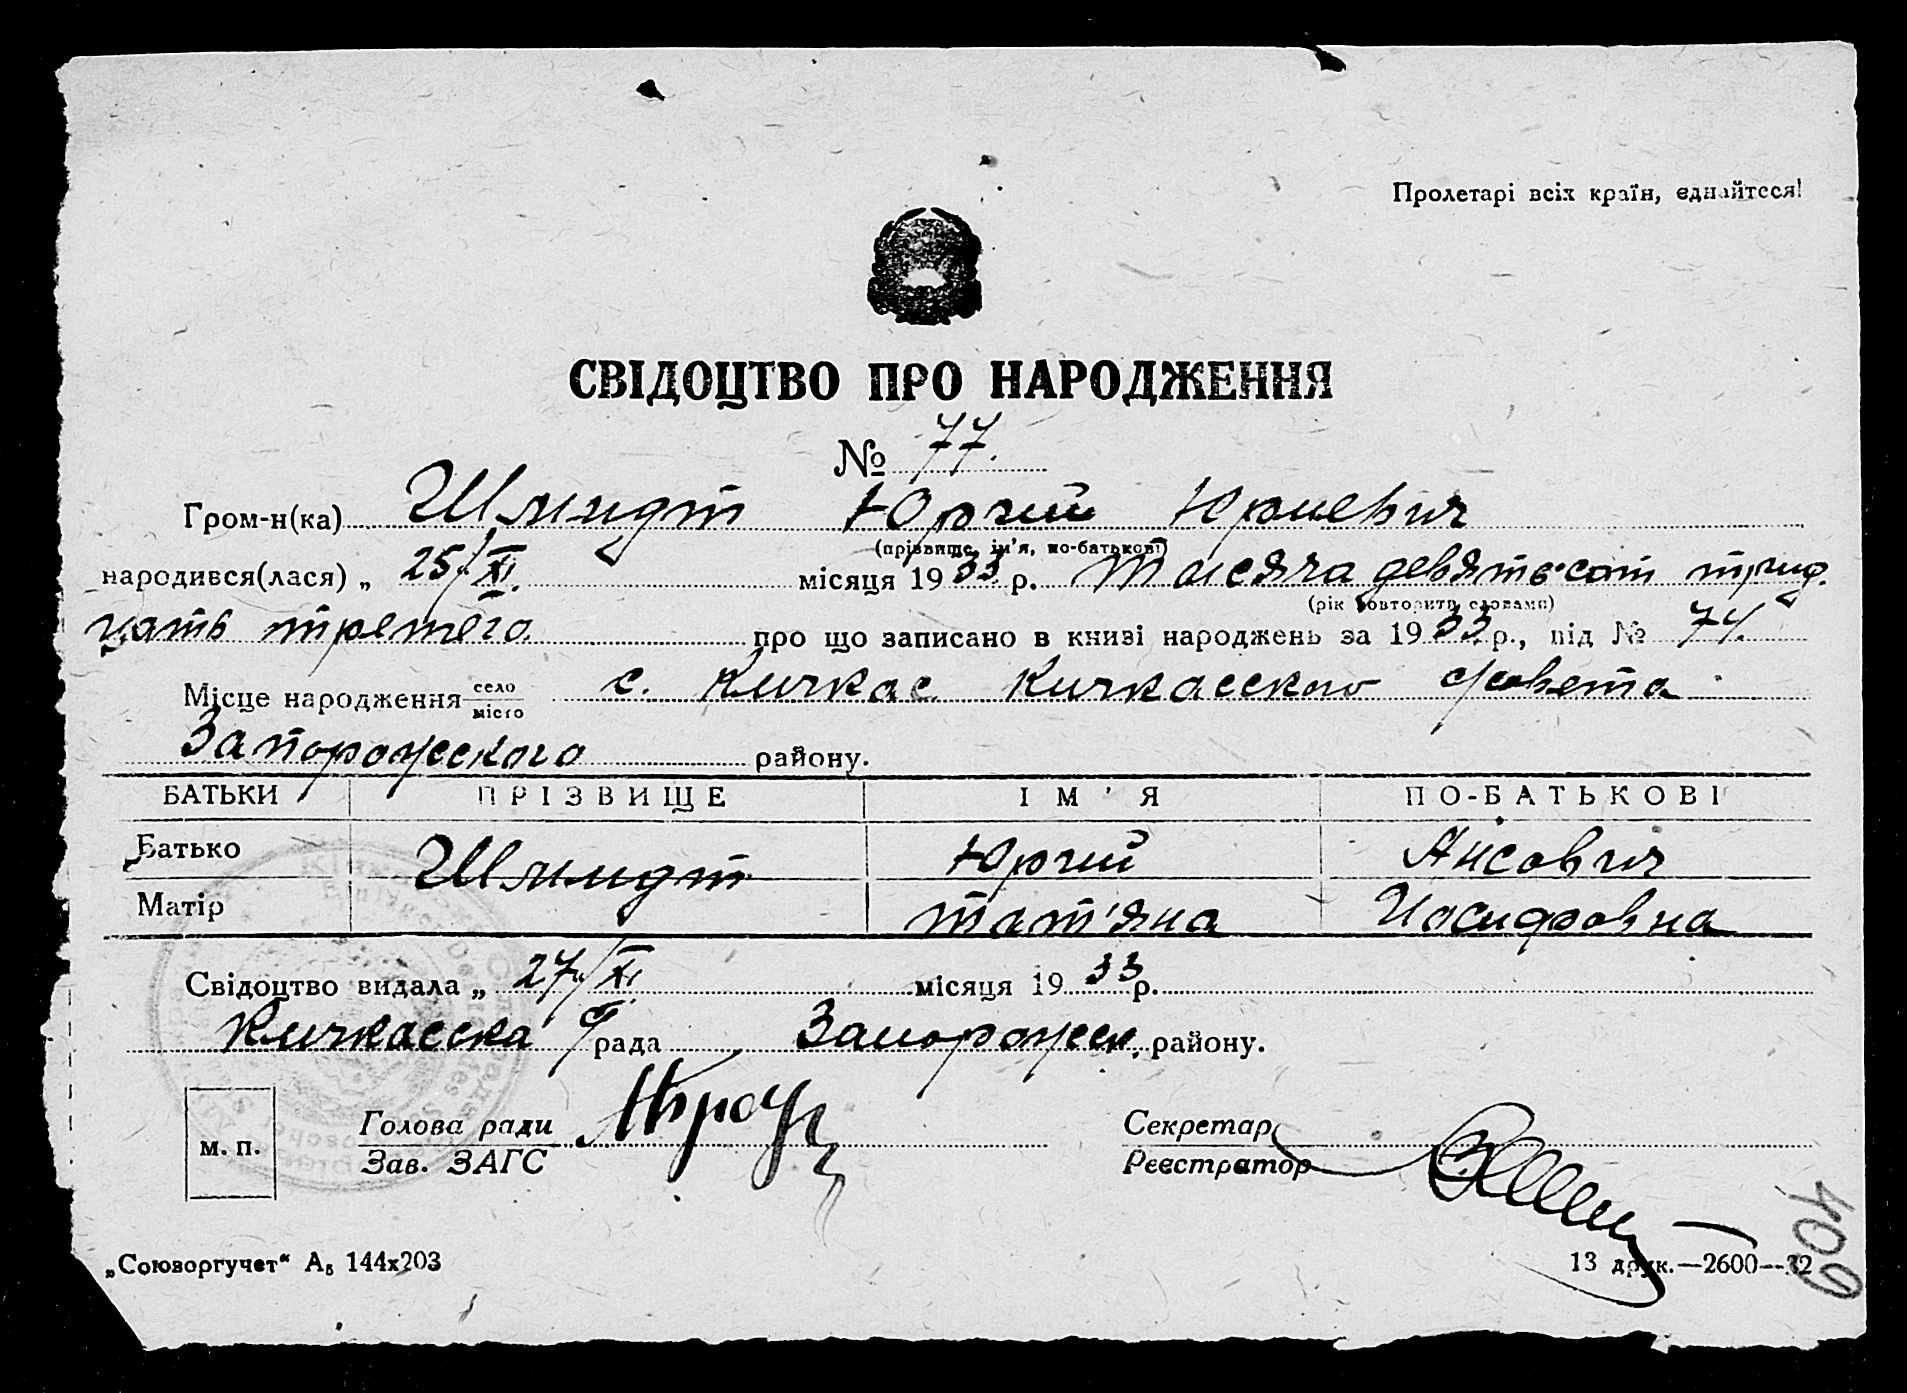 Пролетарі всіх країн, єднайтеся!
СВІДОЦТВО ПРО НАРОДЖЕННЯ
№ 77.
Гром-н(ка) Шмидт Юрий Юриевич
(прізвище, ім'я, по-батькові)
народився(лася) „ 25/XI. місяця 1933 р. тысяча девятьсот трид.
(рік повторити словами)
цать третего про що записано в книзі народжень за 1933 р., під № 74.
Місце народження село с. Кичкас Кичкасского с/совета
місто
Запорожского району.
БАТЬКИ ПРІЗВИЩЕ ІМ'Я ПО-БАТЬКОВІ
Батько Шмидт Юрий
Матір тат'яна Иосифовна
Свідоцтво видала „ 27/XI. місяця 1933 р.
Кичкасска с/рада Запорожск. району.
м. п.
Голова ради Секретар
Зав. ЗАГС Реєстратор
„Союзоргучет“ А₅ 144х203 13 друк.—2600—32
409